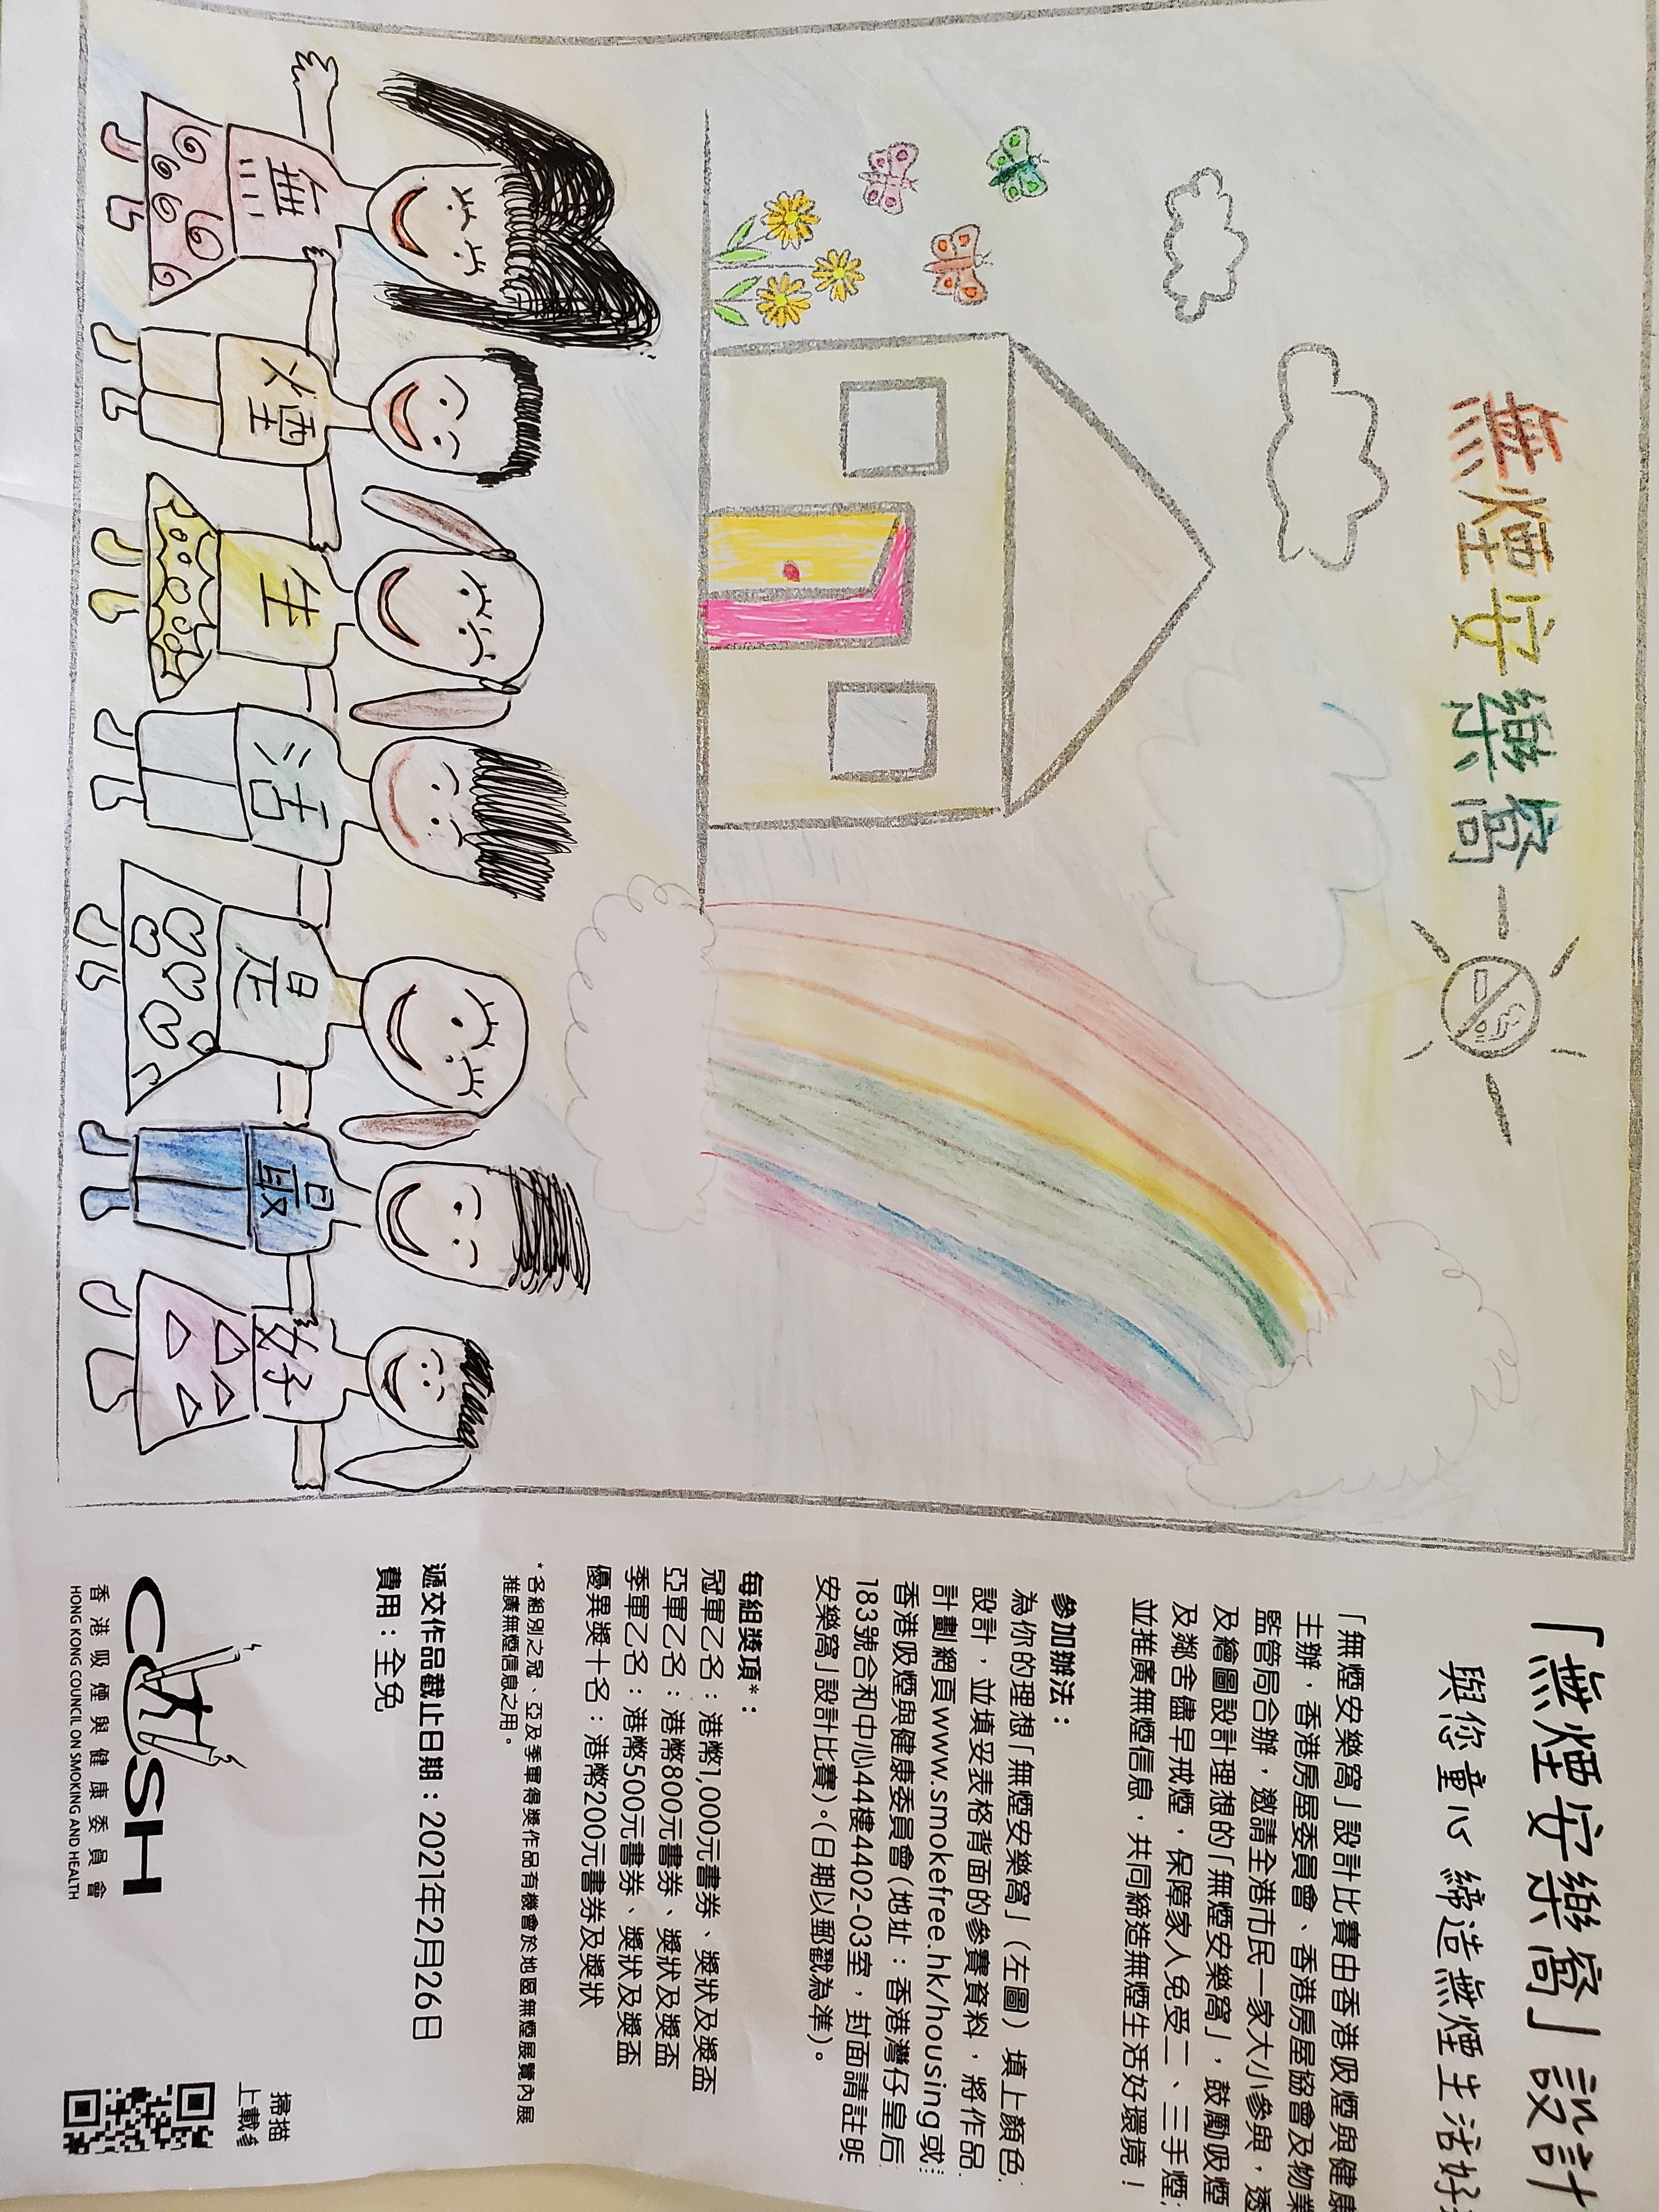 無煙安樂窩
無
煙
生
活
是
最
好
「無煙安樂窩」設計
與您童心 締造無煙生活好
「無煙安樂窩」設計比賽由香港吸煙與健康
主辦，香港房屋委員會、香港房屋協會及物業
監管局合辦，邀請全港市民一家大小參與，透
及繪圖設計理想的「無煙安樂窩」，鼓勵吸煙
及鄰舍儘早戒煙，保障家人免受二、三手煙
並推廣無煙信息，共同締造無煙生活好環境！
參加辦法：
為你的理想「無煙安樂窩」（左圖）填上顏色
設計，並填妥表格背面的參賽資料，將作品
計劃網頁www.smokefree.hk/housing或
香港吸煙與健康委員會（地址：香港灣仔皇后
183號合和中心44樓4402-03室，封面請註明
安樂窩」設計比賽）。（日期以郵戳為準）。
每組獎項*：
冠軍乙名：港幣1,000元書券、獎狀及獎盃
亞軍乙名：港幣800元書券、獎狀及獎盃
季軍乙名：港幣500元書券、獎狀及獎盃
優異獎十名：港幣200元書券及獎狀
*各組別之冠、亞及季軍得獎作品有機會於地區無煙展覽內展
推廣無煙信息之用。
遞交作品截止日期：2021年2月26日
費用：全免
COSH
香港吸煙與健康委員會
HONG KONG COUNCIL ON SMOKING AND HEALTH
掃描
上載